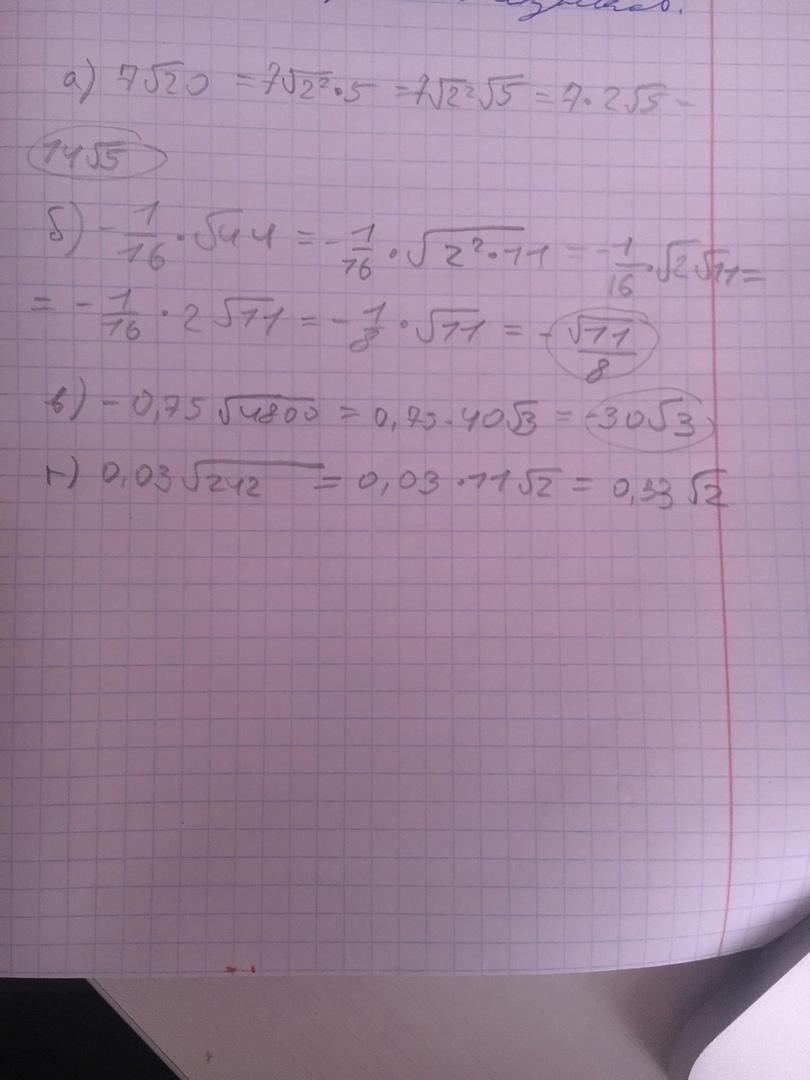 а) 7√20 = 7√2²·5 = 7√2²√5 = 7·2√5 -
14√5
б) -1/16 · √44 = -1/16 · √2²·11 = -1/16 · √2√11 =
= -1/16 · 2√11 = -1/8 · √11 = -√11/8
в) -0,75 √4800 = 0,75·40√3 = -30√3
г) 0,03√242 = 0,03·11√2 = 0,33√2